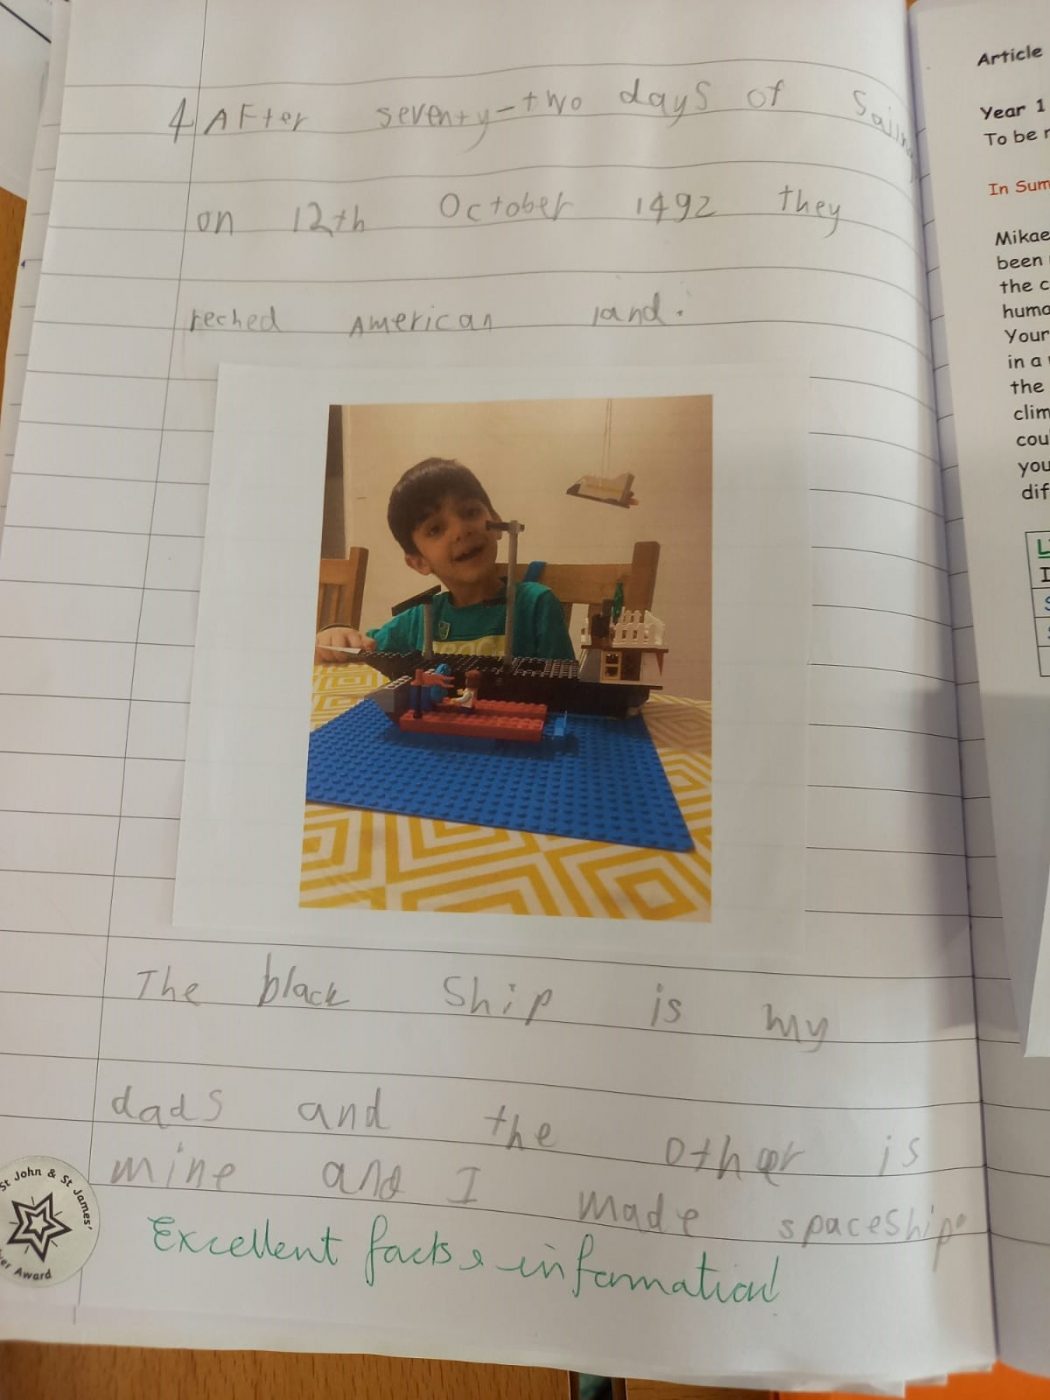 4 AFter seventy-two days of Sailing
on 12th October 1492 they
reched American land.
The black Ship is my
dads and the other is
mine and I made spaceship.
Excellent facts & information!
St John & St James'
Award
Article
Year 1
To be
In Sum
Mikae
been
the c
huma
Your
in a
the
clim
cou
you
dif